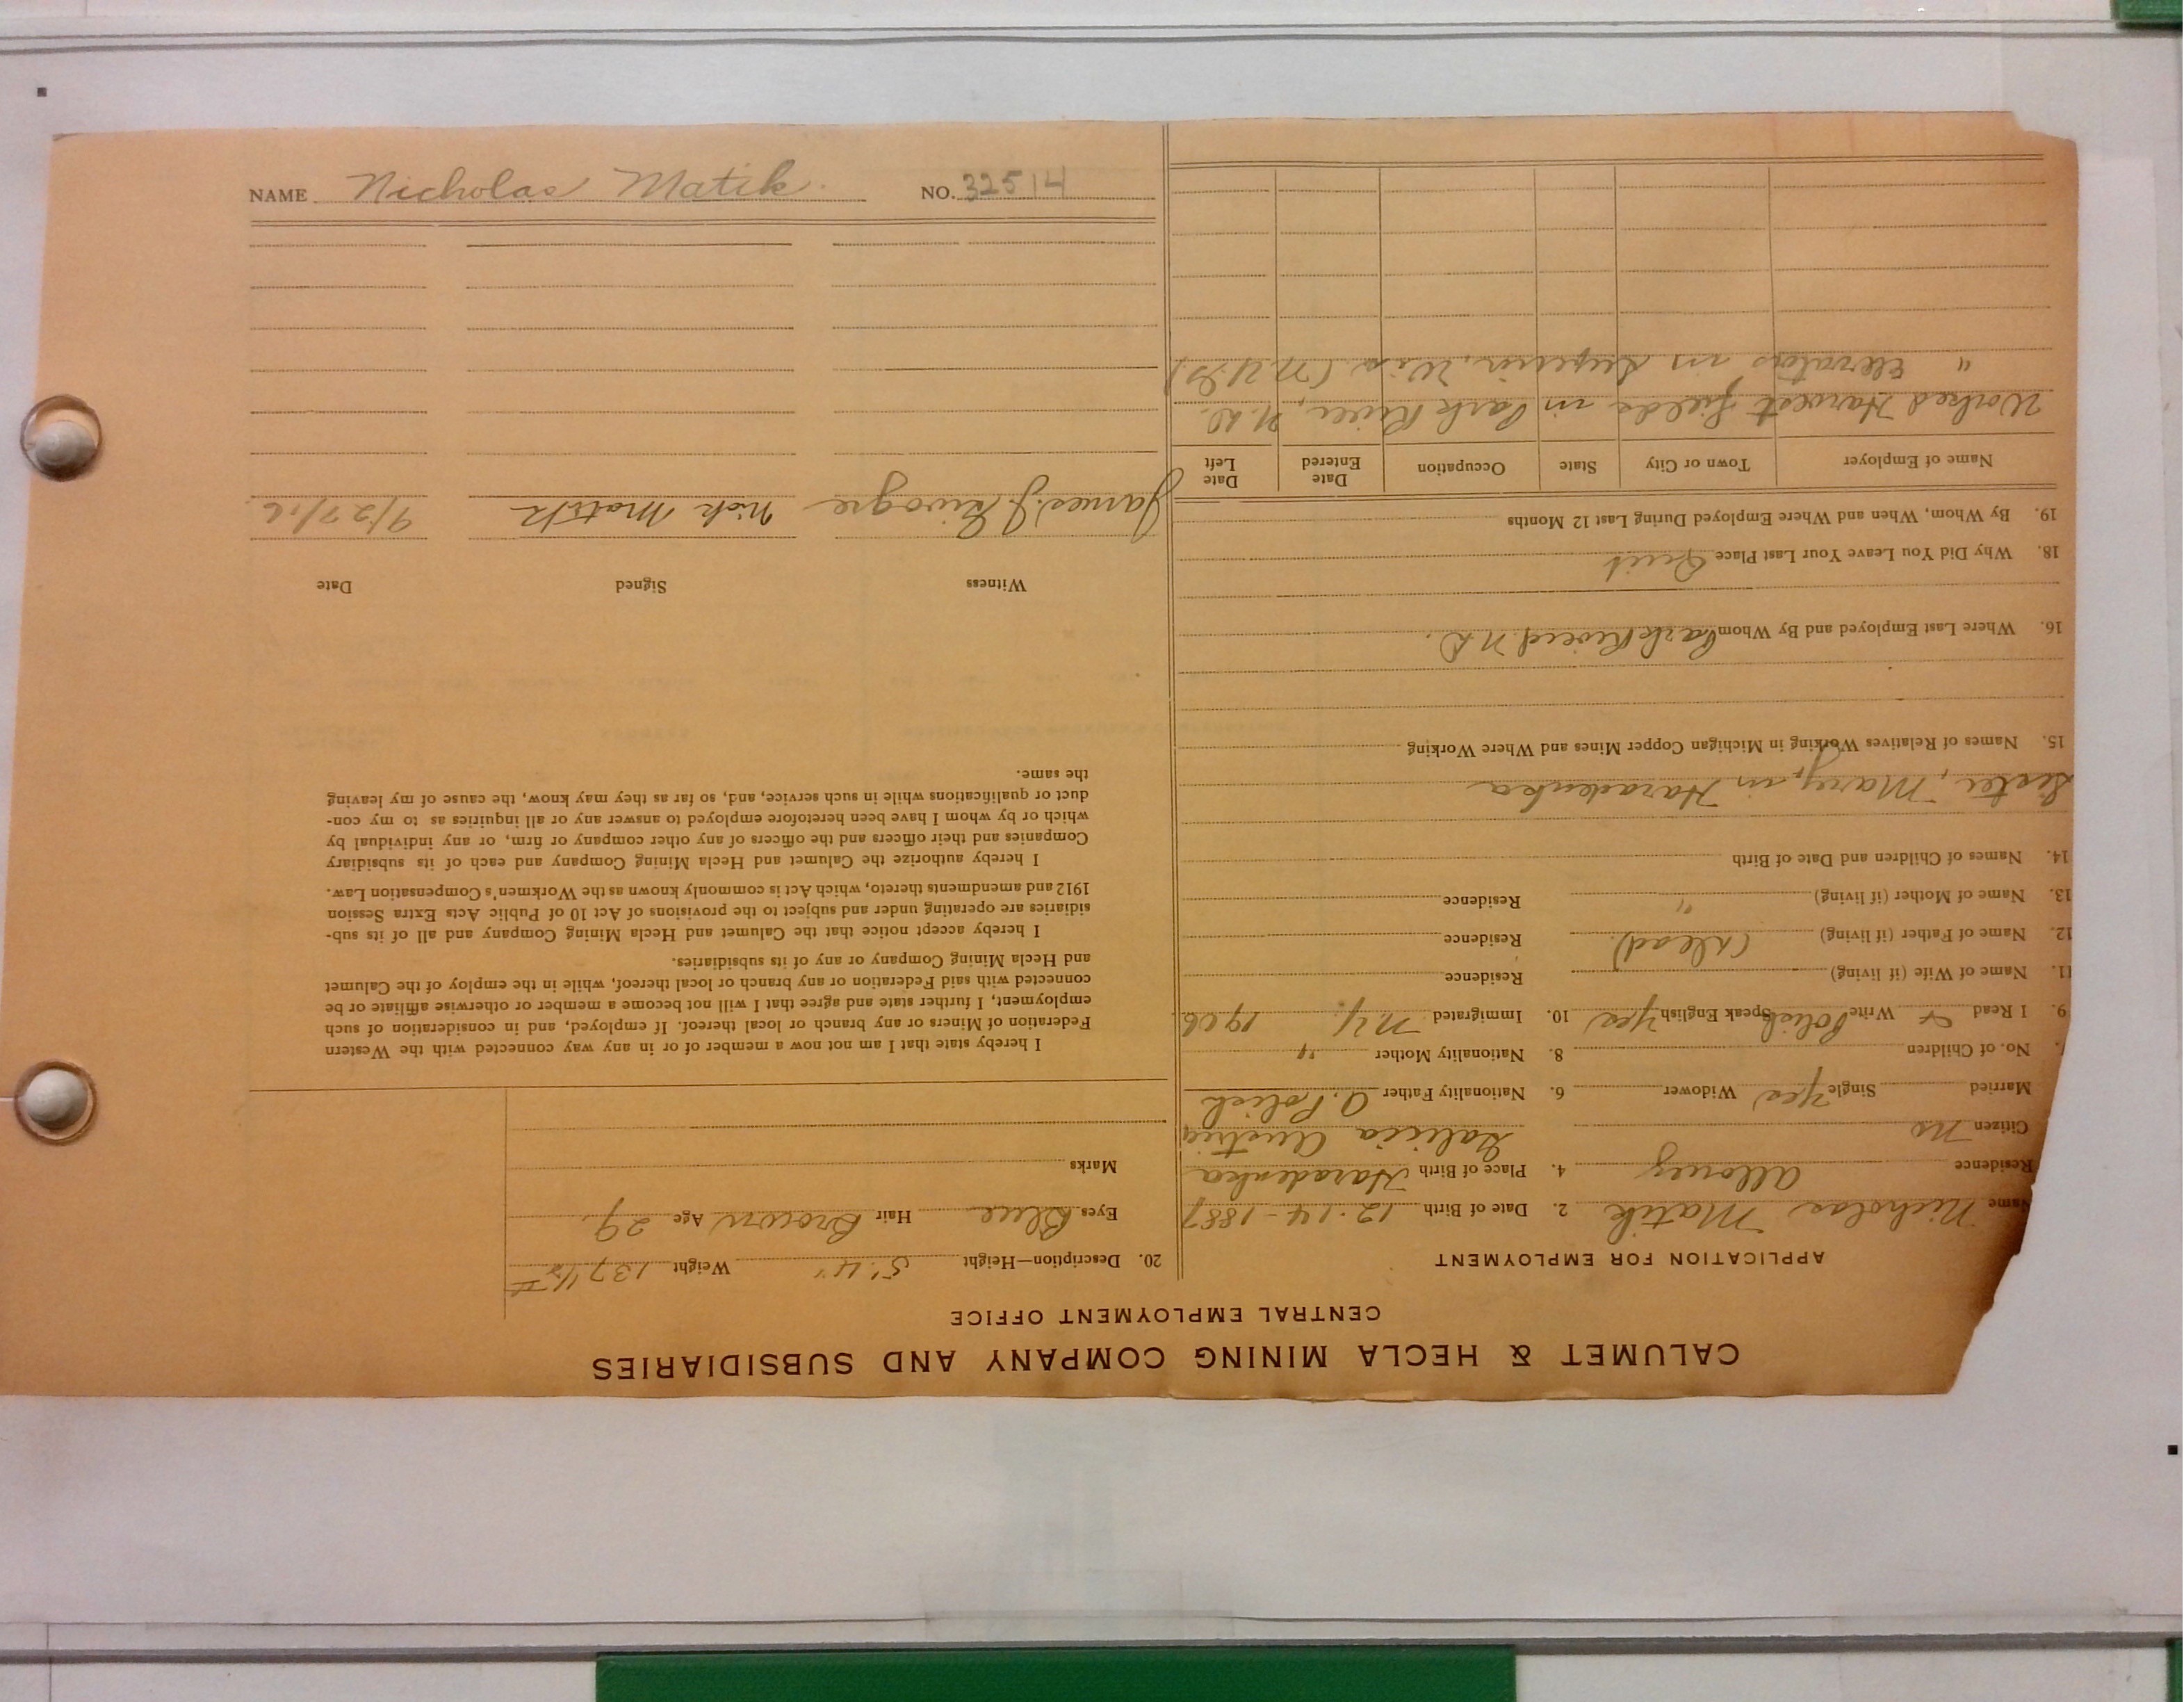 CALUMET & HECLA MINING COMPANY AND SUBSIDIARIES
CENTRAL EMPLOYMENT OFFICE
APPLICATION FOR EMPLOYMENT
Name Nicholas Matik 2. Date of Birth 12-14-1887
Residence Allouez 4. Place of Birth Haradenka
Citizen No Galicia Austria
Married Single Yes Widower 6. Nationality Father A. Polish
No. of Children 8. Nationality Mother "
9. I Read & Write Polish Speak English Yes 10. Immigrated N.Y. 1906
11. Name of Wife (if living) Residence
12. Name of Father (if living) (dead) Residence
13. Name of Mother (if living) " Residence
14. Names of Children and Date of Birth
Sister, Mary, in Haradenka
15. Names of Relatives Working in Michigan Copper Mines and Where Working
16. Where Last Employed and By Whom Park River N.D.
18. Why Did You Leave Your Last Place Quit
19. By Whom, When and Where Employed During Last 12 Months
Name of Employer Town or City State Occupation Date Entered Date Left
Worked Harvest fields in Park River, N.D.
" Elevators in Superior, Wis
20. Description—Height 5'. 4" Weight 137 1/2 #
Eyes Blue Hair Brown Age 29
Marks
I hereby state that I am not now a member of or in any way connected with the Western
Federation of Miners or any branch or local thereof. If employed, and in consideration of such
employment, I further state and agree that I will not become a member or otherwise affiliate or be
connected with said Federation or any branch or local thereof, while in the employ of the Calumet
and Hecla Mining Company or any of its subsidiaries.
I hereby accept notice that the Calumet and Hecla Mining Company and all of its sub-
sidiaries are operating under and subject to the provisions of Act 10 of Public Acts Extra Session
1912 and amendments thereto, which Act is commonly known as the Workmen's Compensation Law.
I hereby authorize the Calumet and Hecla Mining Company and each of its subsidiary
Companies and their officers and the officers of any other company or firm, or any individual by
which or by whom I have been heretofore employed to answer any or all inquiries as to my con-
duct or qualifications while in such service, and, so far as they may know, the cause of my leaving
the same.
Witness Signed Date
James J. Nick Matik 9/27/16
NAME Nicholas Matik NO. 32514